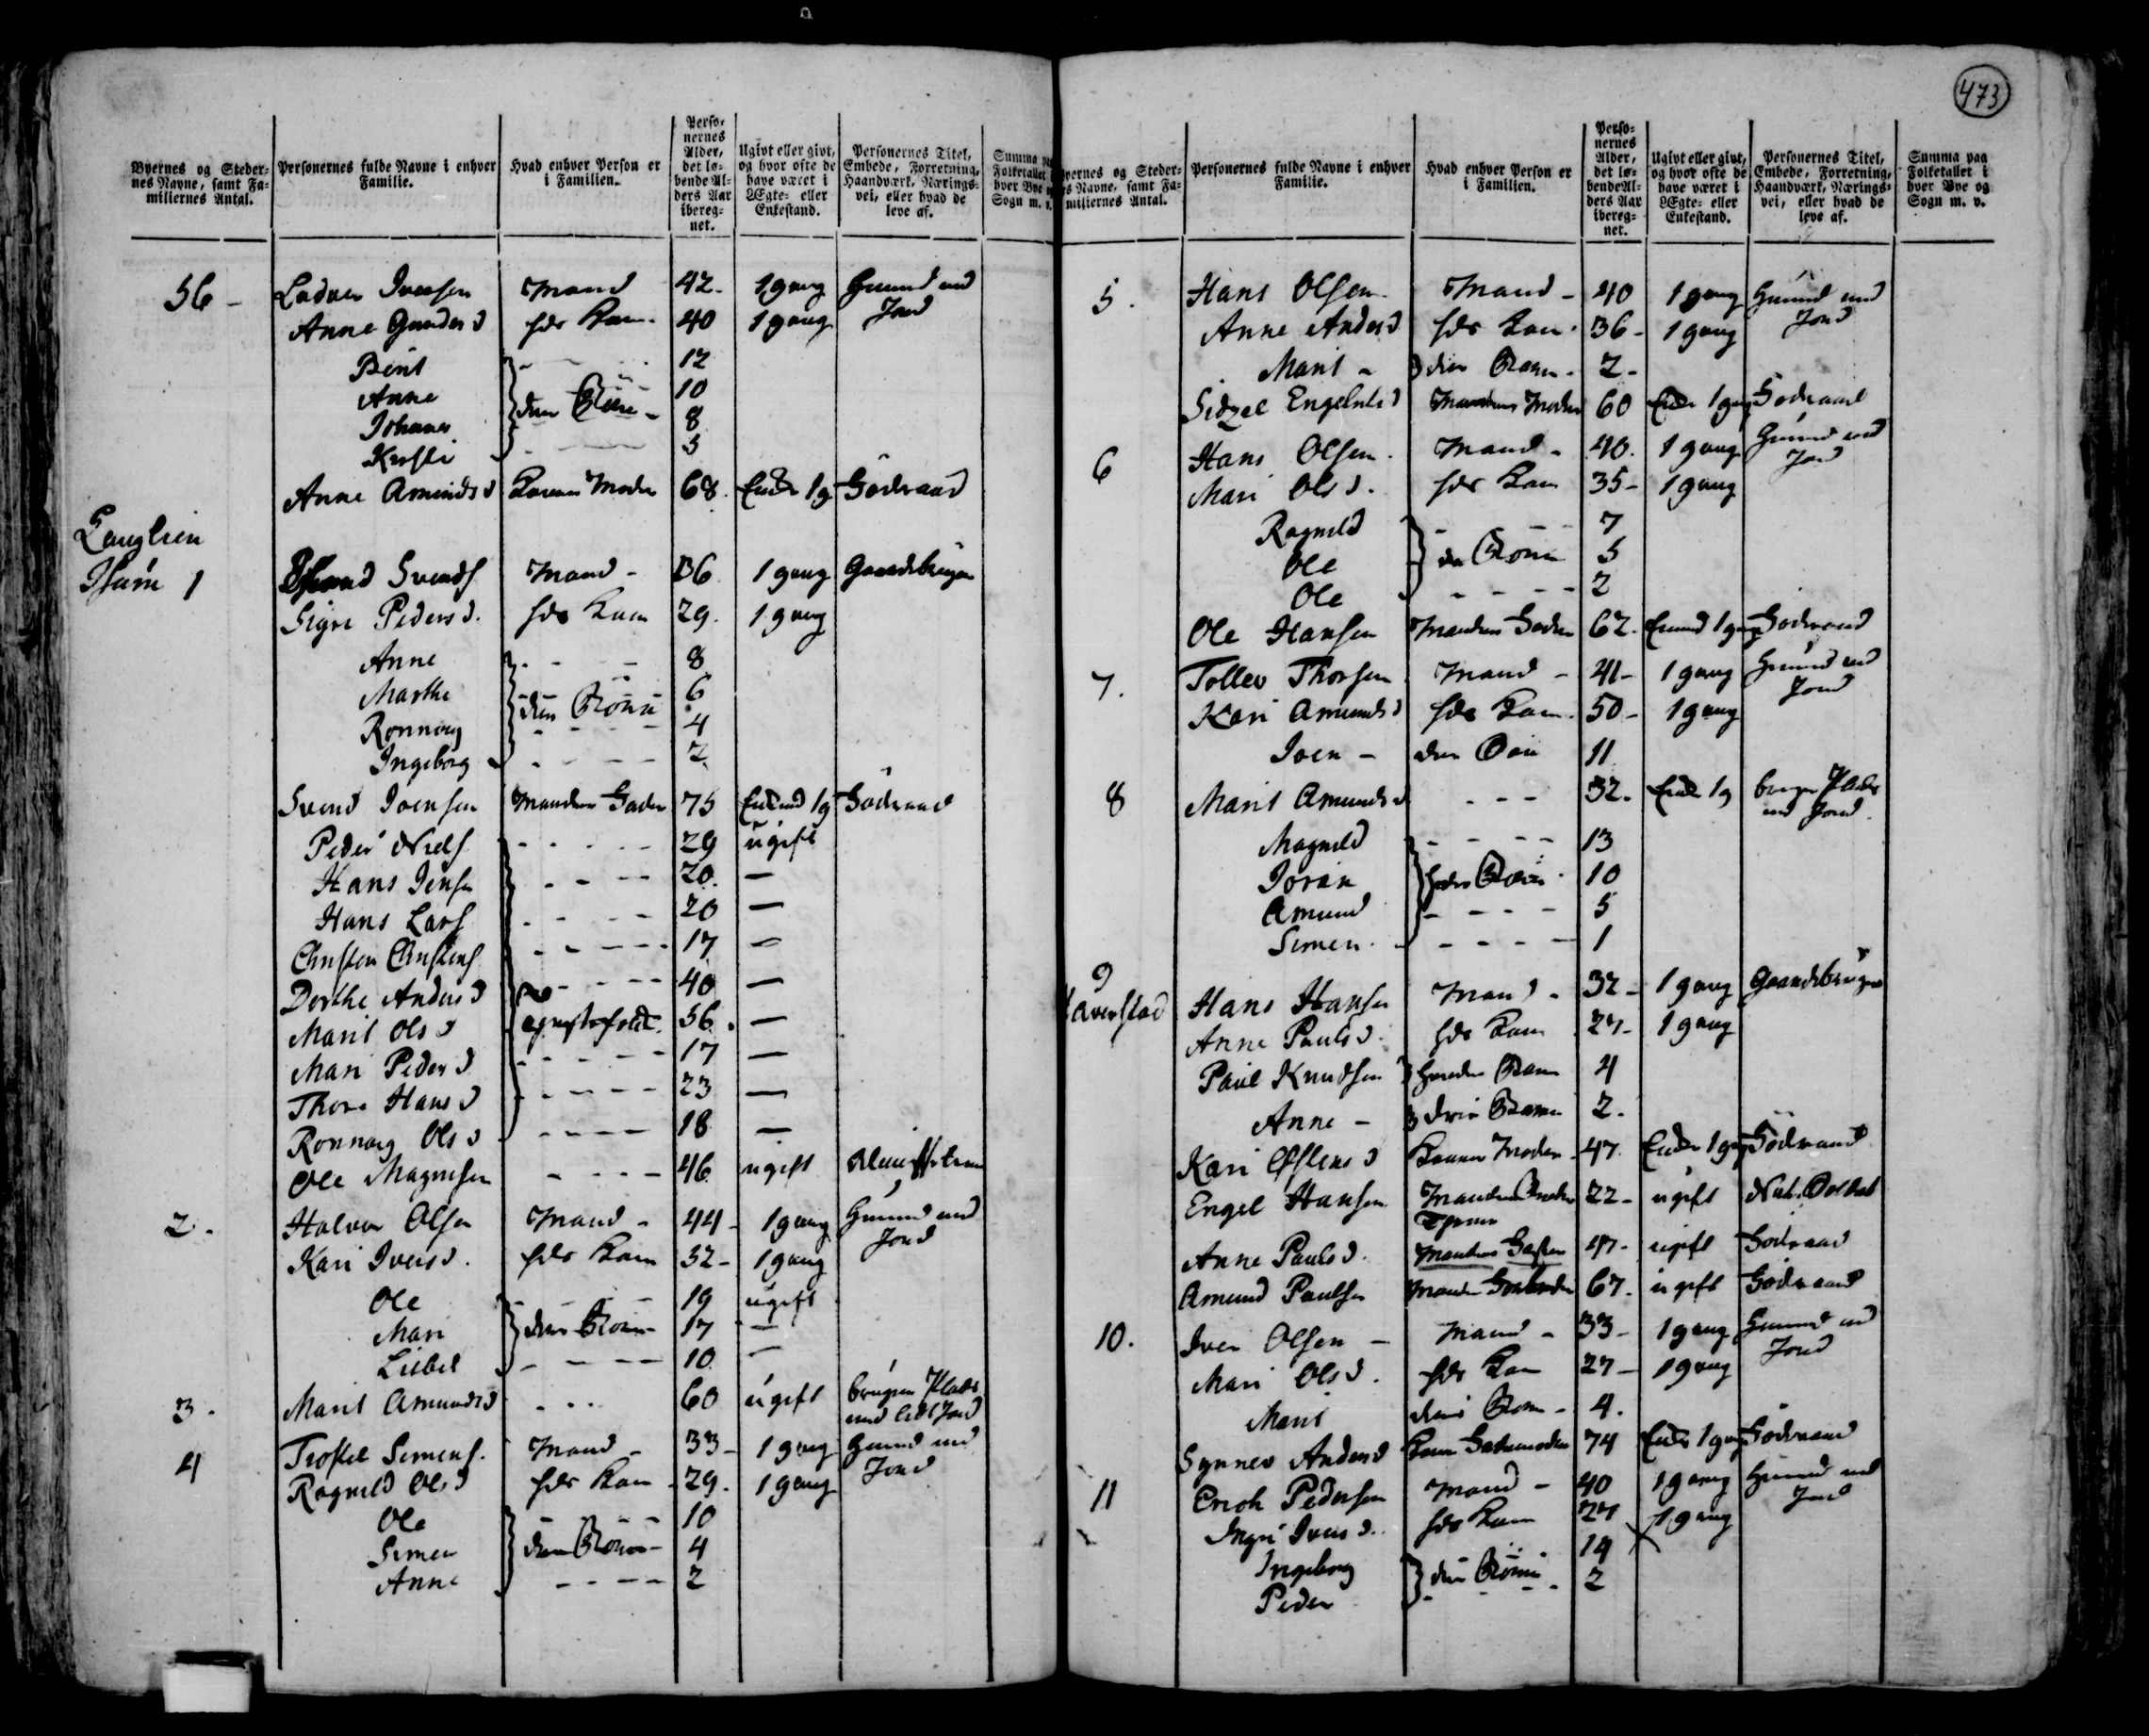 473
Byernes og Steder- nes Navne, samt Fa- miliernes Antal.
Personernes fulde Navne i enhver Familie.
Hvad enhver Person er i Familien.
Perso- nernes Alder, det lø- bende Al- ders Aar ibereg- net.
Ugivt eller givt, og hvor ofte de have været i Ægte- eller Enkestand.
Personernes Titel, Embede, Forretning, Haandværk, Nærings- vei, eller hvad de leve af.
Summa Folketallet hver Bye Sogn m. v.
56 - Ladver Iversen Mand 42. 1 gang Huusmd med
Anne Gunders D hds Kone 40 1 gang Jord
Bent - 12
Anne 10
Johannes deres Børn - 8
Kirsti 5
Anne Amunds D Konens Moder 68. Enke 1 g Føderaad
Isum 1 Svends. Mand - 36. 1 gang Gaardbruger
Signe Peders D. hds Kone 29. 1 gang
Anne 8
Marthe 6
Ronnoug deres Børn 4
Ingeborg 2
Svend Joensen Mandens Fader 75 Enkemd 1 g Føderaad
Peder Niels. 29 ugift
Hans Jensen 20. —
Hans Lars. 20 —
Christen Christens. 17 —
Dorthe Anders D 40 —
Marit Ols D tienestefolk. 56. —
Mari Peders D 17 —
Thore Hans D 23 —
Ronnoug Ols D 18 —
Ole Magnesen 46 ugift
2. Halvor Olsen Mand - 44 - 1 gang Huusmd med
Kari Ivers D. hds Kone 32 - 1 gang Jord
Ole 19 ugift
Mari deres Børn 17 —
Lisbet 10. —
3. Marit Amunds D 60 ugift bruger Plads
med lidt Jord
4 Trostel Simens. Mand - 33 - 1 gang Huusmd med
Ragnild Ols D hds Kone 29. 1 gang Jord
Ole 10
Simen deres Børn - 4
Anne 2
Byernes og Steder- nes Navne, samt Fa- miliernes Antal.
Personernes fulde Navne i enhver Familie.
Hvad enhver Person er i Familien.
Perso- nernes Alder, det lø- bende Al- ders Aar ibereg- net.
Ugivt eller givt, og hvor ofte de have været i Ægte- eller Enkestand.
Personernes Titel, Embede, Forretning, Haandværk, Nærings- vei, eller hvad de leve af.
Summa paa Folketallet i hver Bye og Sogn m. v.
5. Hans Olsen Mand - 40 1 gang Huusmd med
Anne Anders D hds Kone 36 - 1 gang Jord
Marit - deres Barn - 2 -
Sidzel Engelbts D Mandens Moder 60 Enke 1 gang Føderaad
6 Hans Olsen. Mand - 40. 1 gang Huusmd med
Mari Ols D. hds Kone 35 - 1 gang Jord
Ragnild 7
Ole deres Børn 5
Ole 2
Ole Hansen Mandens Fader 62. Enkemd 1 gang Føderaad
7. Tollev Thorsen Mand - 41 - 1 gang Huusmd med
Kari Amunds D hds Kone 50 - 1 gang Jord
Joen - deres Søn 11
8 Marit Amunds D - - - 32. Enke 1 g bruger Plads
med Jord.
Magnild 13
Joran hendes Børn 10
Amund 5
Simen. 1
9
Haverstad Hans Hansen Mand - 32 - 1 gang Gaardbruger
Anne Pauls D. hds Kone 27 - 1 gang
Paul Knudsen hendes Barn 4
Anne - deres Barn 2.
Kari Østens D Konens Moder 47. Enke 1 gang Føderaad
Engel Hansen Mandens Broder 22 - ugift Nat. Soldat
Anne Pauls D. Mandens 47 - ugift Føderaad
Amund Paulsen Mandens 67. ugift Føderaad
10. Iver Olsen - Mand - 33 - 1 gang Huusmd med
Mari Ols D. hds Kone 27 - 1 gang Jord
Marit deres Barn - 4.
Synnev Anders D Konens 74 Enke 1 gang Føderaad
11 Erich Pedersen Mand - 40 1 gang Huusmd med
Ingri Ivers D. hds Kone 27 1 gang Jord
Ingeborg deres Børn 14
Peder 2